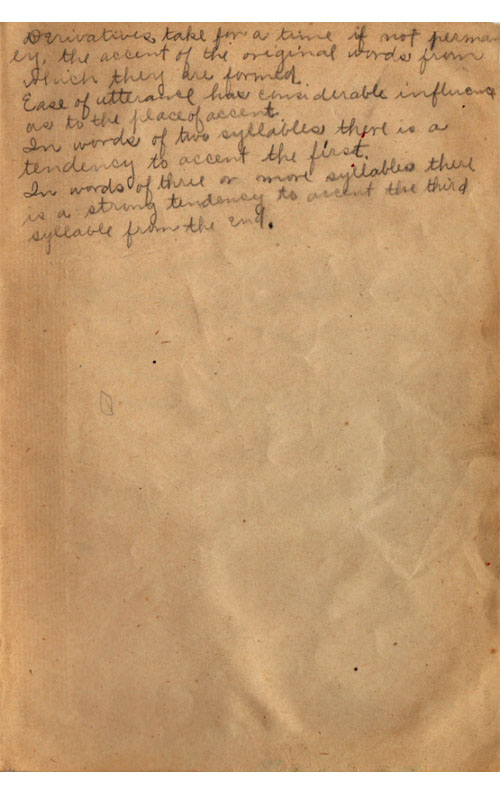 Derivatives take for a time if not perman
ly, the accent of the original words from
which they are formed.
Ease of utterance has considerable influence
as to the place of accent.
In words of two syllables there is a
tendency to accent the first.
In words of three or more syllables there
is a strong tendency to accent the third
syllable from the end.